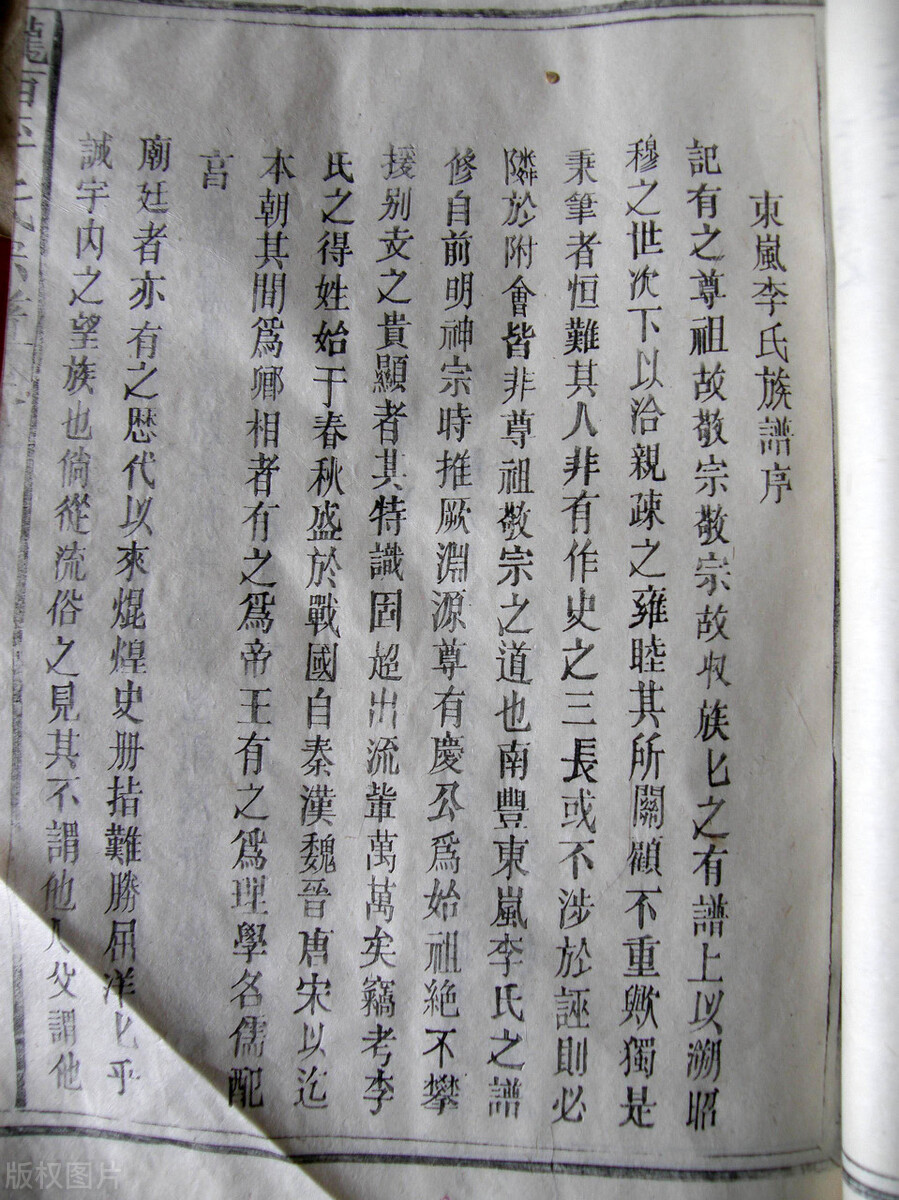 東嵐李氏族譜序
記有之尊祖故敬宗敬宗故収族匕之有譜上以溯昭
穆之世次下以洽親疎之雍睦其所關顧不重歟獨是
秉筆者恒難其人非有作史之三長或不涉於誣則必
隣於附會皆非尊祖敬宗之道也南豐東嵐李氏之譜
修自前明神宗時推厥淵源尊有慶公爲始祖絶不攀
援别支之貴顯者其特識固超出流輩萬萬矣竊考李
氏之得姓始于春秋盛於戰國自秦漢魏晉唐宋以迄
本朝其間爲卿相者有之爲帝王有之爲理學名儒配
享
廟廷者亦有之歷代以來焜煌史册指難勝屈洋匕乎
誠宇内之望族也倘從流俗之見其不謂他人父謂他
版权图片